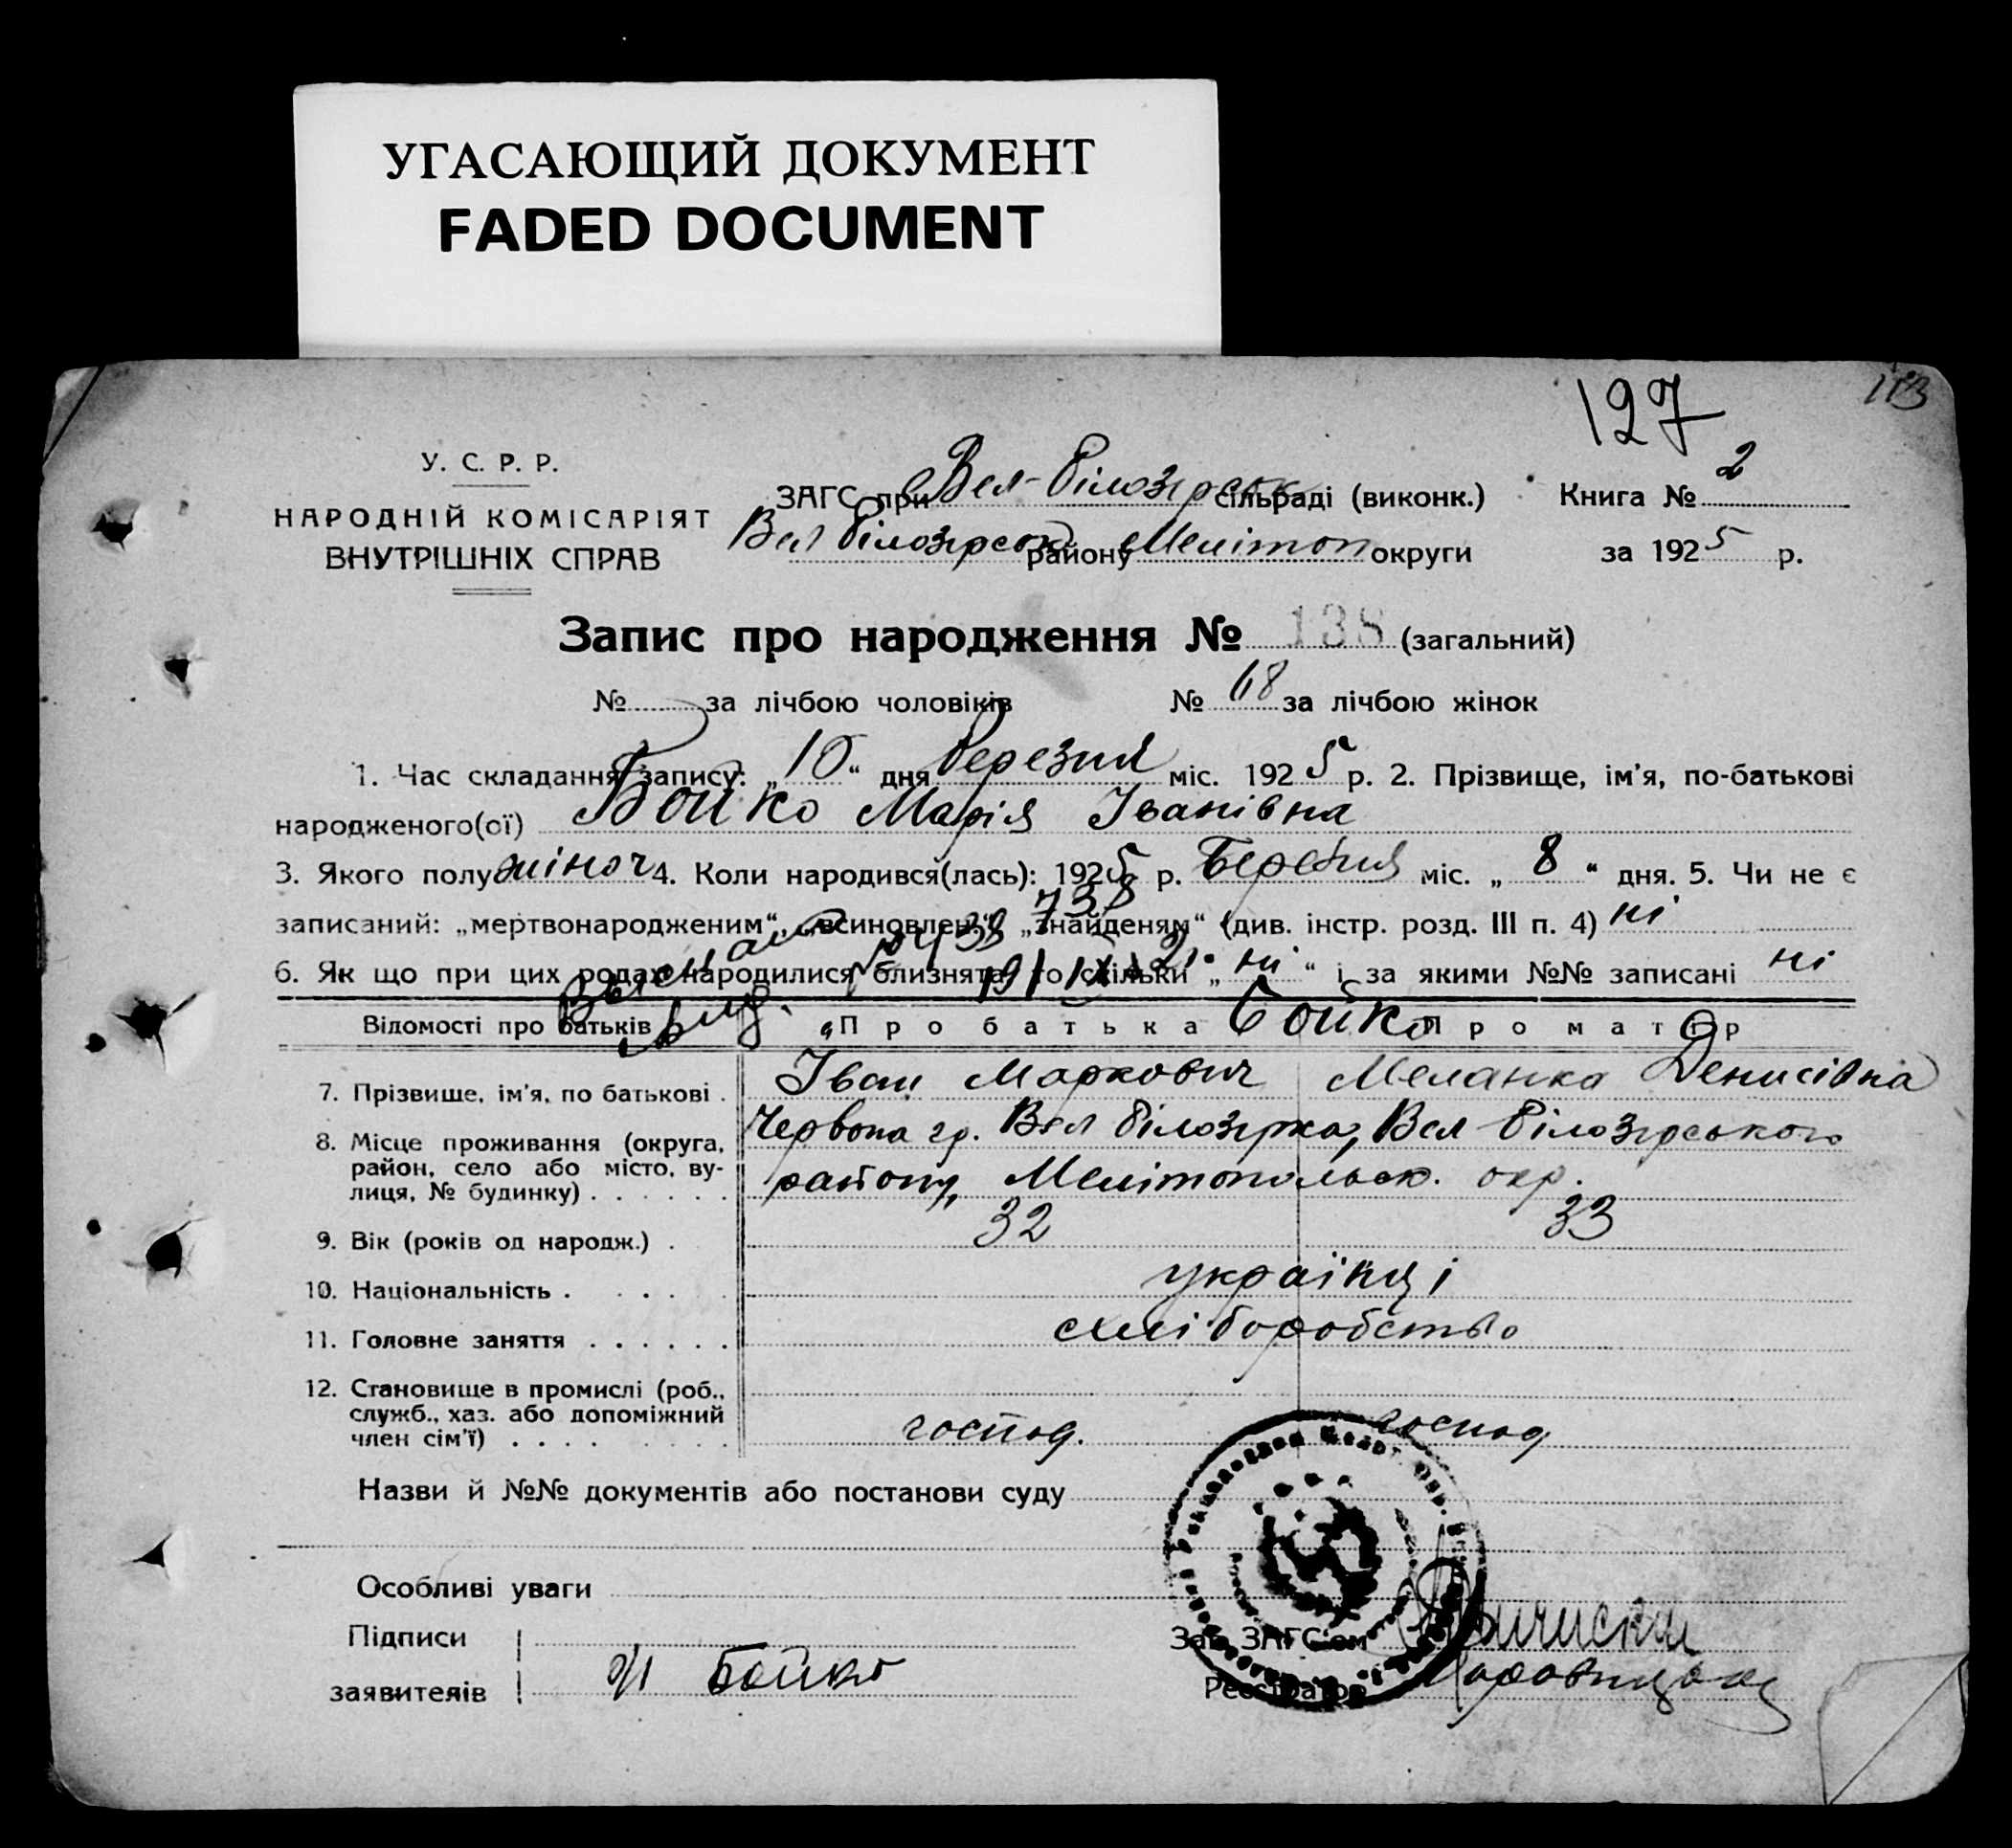 УГАСАЮЩИЙ ДОКУМЕНТ
FADED DOCUMENT
113
127
У. С. Р. Р.
НАРОДНІЙ КОМІСАРІЯТ
ВНУТРІШНІХ СПРАВ
ЗАГС при Вел-Білозірськ сільраді (виконк.)
Вел Білозірськ району Мелітоп округи
Книга № 2
за 1925 р.
Запис про народження № 138 (загальний)
№ за лічбою чоловіків № 68 за лічбою жінок
1. Час складання запису: „10“ дня березня міс. 1925 р. 2. Прізвище, ім'я, по-батькові
народженого(ої) Бойко Марія Іванівна
3. Якого полу жіноч 4. Коли народився(лась): 1925 р. Березня міс. „8“ дня. 5. Чи не є
записаний: „мертвонародженим“, „всиновлен“, „знайденям“ (див. інстр. розд. III п. 4) ні
6. Як що при цих родах народилися близнята, то скільки „ні“ і за якими №№ записані ні
Відомості про батьків Про батька Бойко Про матір
7. Прізвище, ім'я, по батькові . Іван Маркович Меланка Денисівна
8. Місце проживання (округа, район, село або місто, вулиця, № будинку) . . . . . . Червона гр. Вел Білозірка, Вел Білозірського
району, Мелітопольськ. окр.
9. Вік (років од народж.) . 32 33
10. Національність . . . . українці
11. Головне заняття . . . . . . хліборобство
12. Становище в промислі (роб., служб., хаз. або допоміжний член сім'ї) . . . . господ. господ
Назви й №№ документів або постанови суду
Особливі уваги
Підписи
заявителів И Бойко
Зав. ЗАГС'ом
Реєстратор